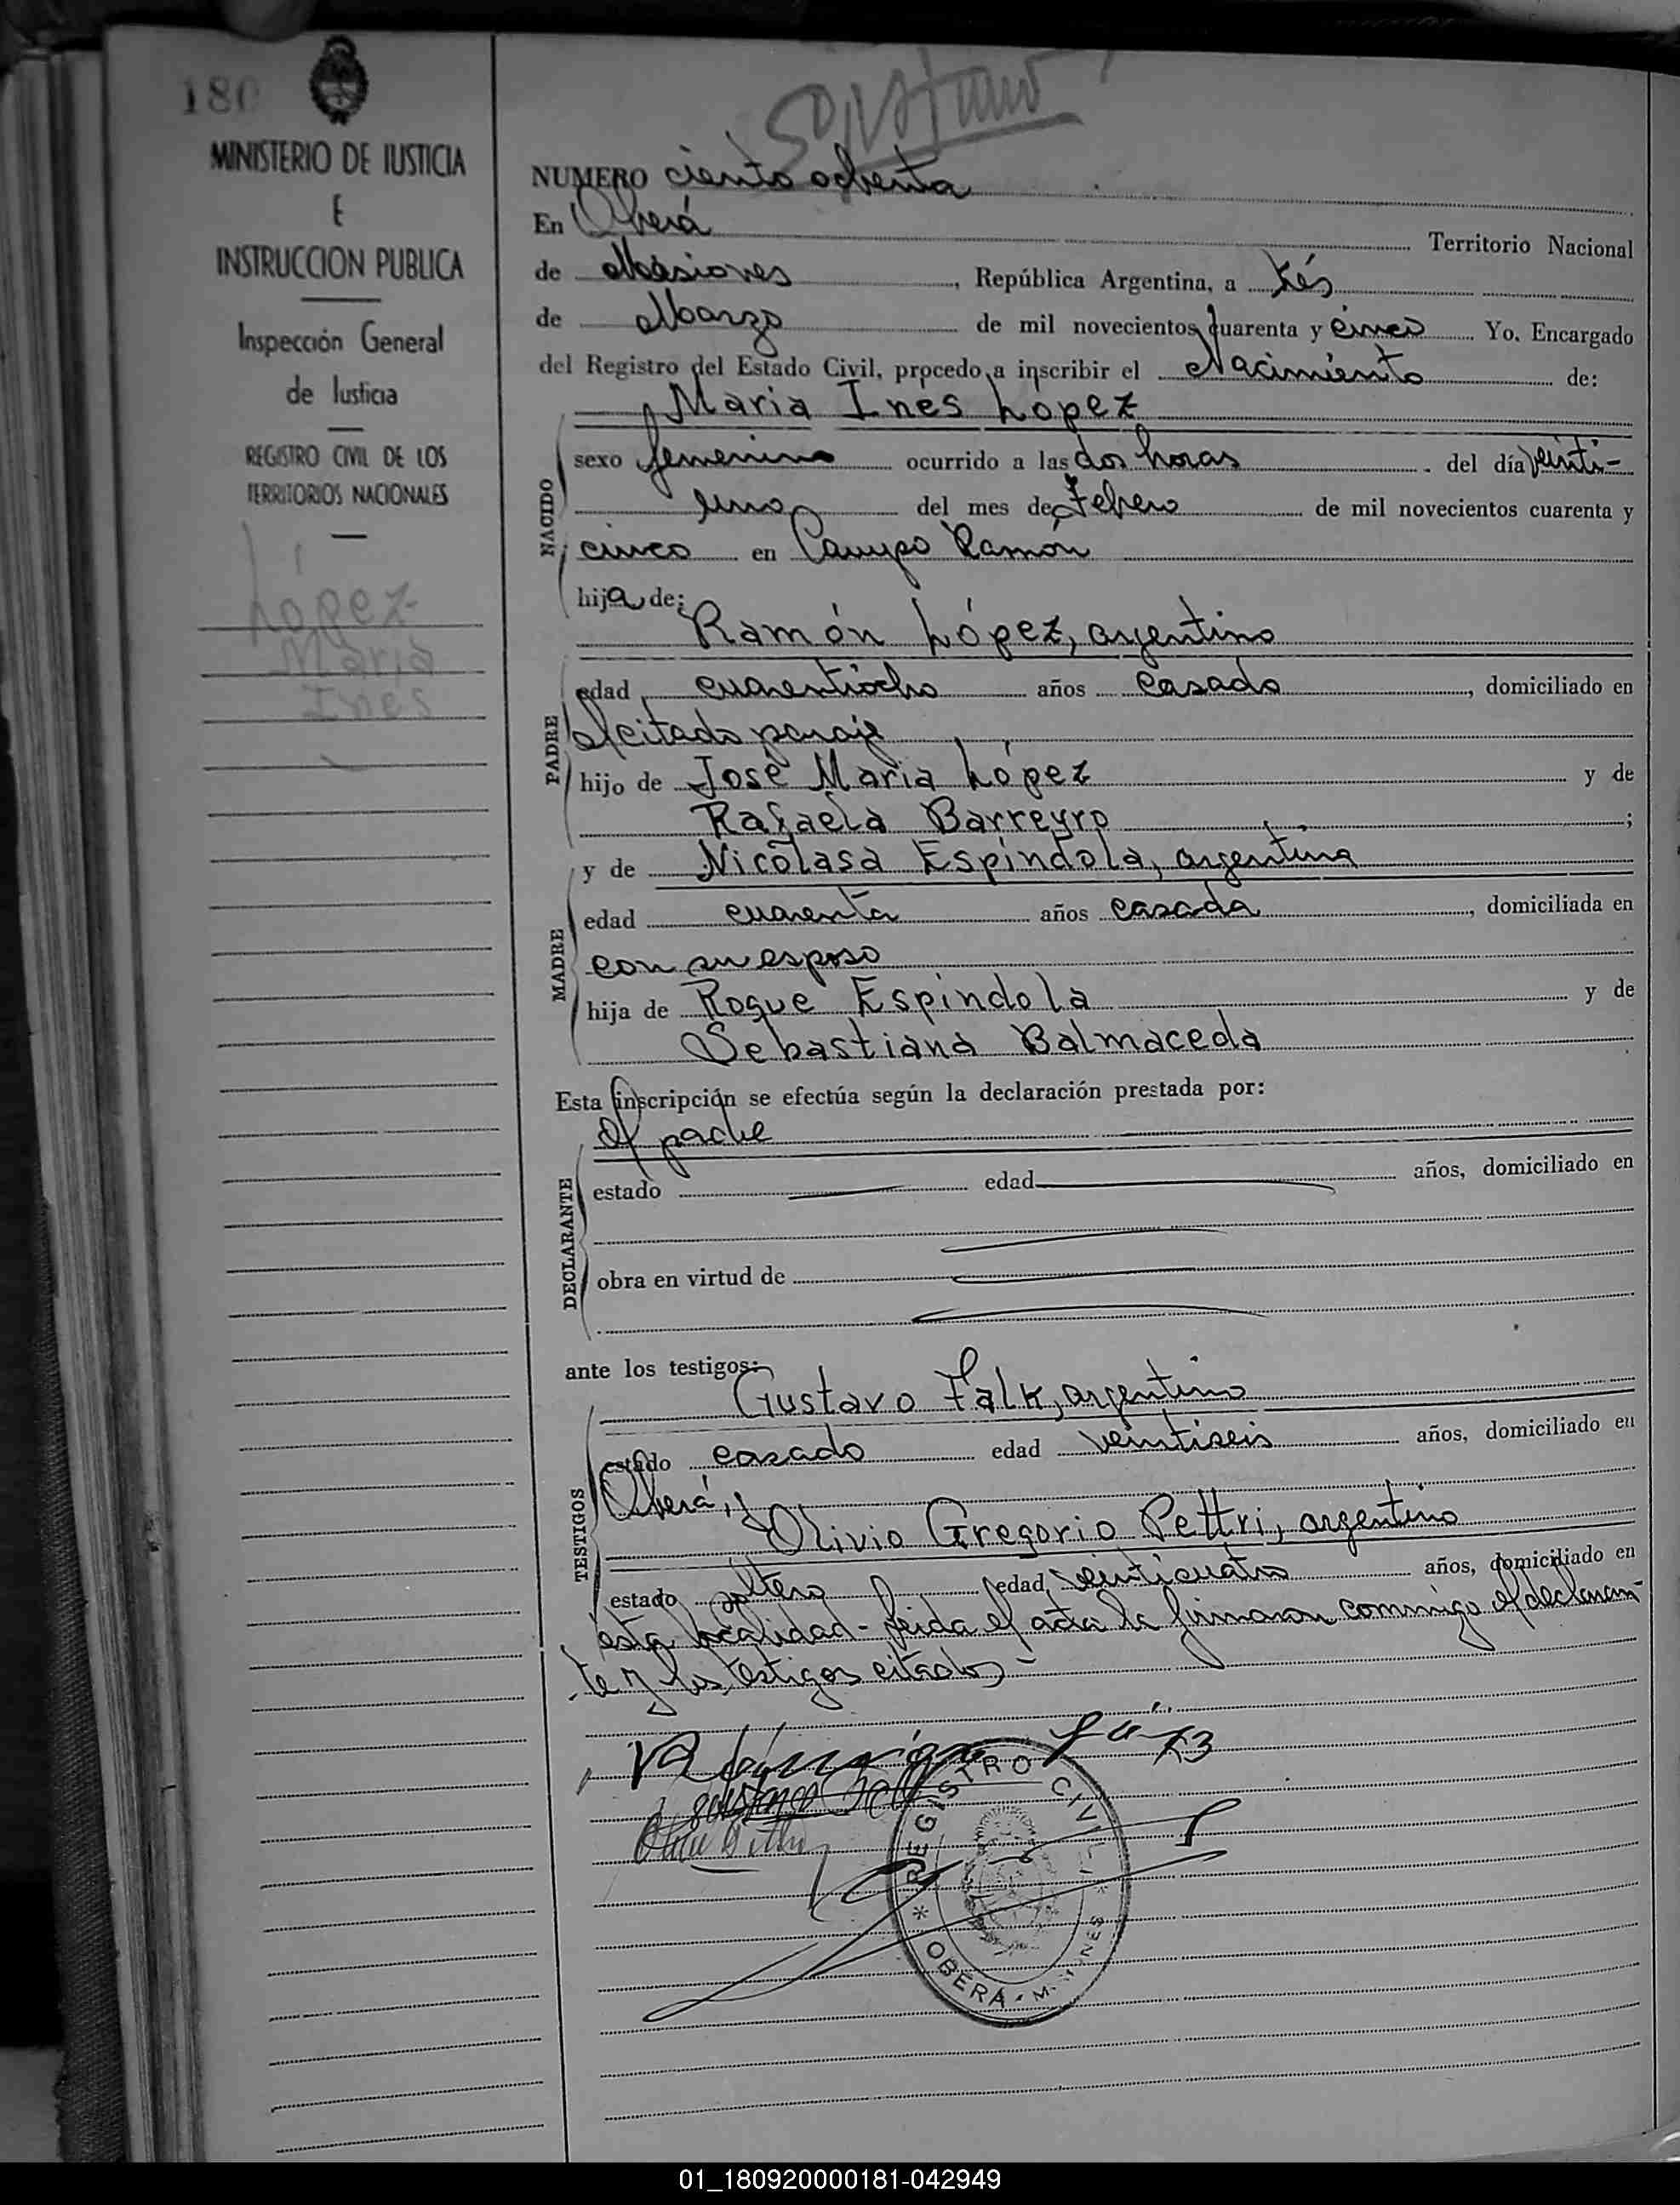 180
MINISTERIO DE JUSTICIA
E
INSTRUCCION PUBLICA
Inspección General
de Justicia
REGISTRO CIVIL DE LOS
TERRITORIOS NACIONALES
López
Maria
Ines
NUMERO ciento ochenta
En Oberá Territorio Nacional
de Misiones, República Argentina, a trés
de Marzo de mil novecientos cuarenta y cinco Yo, Encargado
del Registro del Estado Civil, procedo a inscribir el Nacimiento de:
Maria Ines Lopez
NACIDO
sexo femenino ocurrido a las dos horas del día veinti-
uno del mes de Febrero de mil novecientos cuarenta y
cinco en Campo Ramón
hija de:
Ramón López, argentino
PADRE
edad cuarentiocho años casado, domiciliado en
el citado paraje
hijo de José Maria López y de
Rafaela Barreyro ;
y de Nicolasa Espíndola, argentina
MADRE
edad cuarenta años casada, domiciliada en
con su esposo
hija de Roque Espíndola y de
Sebastiana Balmaceda
Esta inscripción se efectúa según la declaración prestada por:
el padre
DECLARANTE
estado edad años, domiciliado en
obra en virtud de
ante los testigos:
Gustavo Falk, argentino
TESTIGOS
estado casado edad veintiseis años, domiciliado en
Oberá, y
Olivio Gregorio Pettri, argentino
estado soltero edad veinticuatro años, domiciliado en
ésta localidad - leida el acta la firmaron conmigo el declaran-
te y los testigos citados -
REGISTRO CIVIL
OBERA - MISIONES
01_180920000181-042949